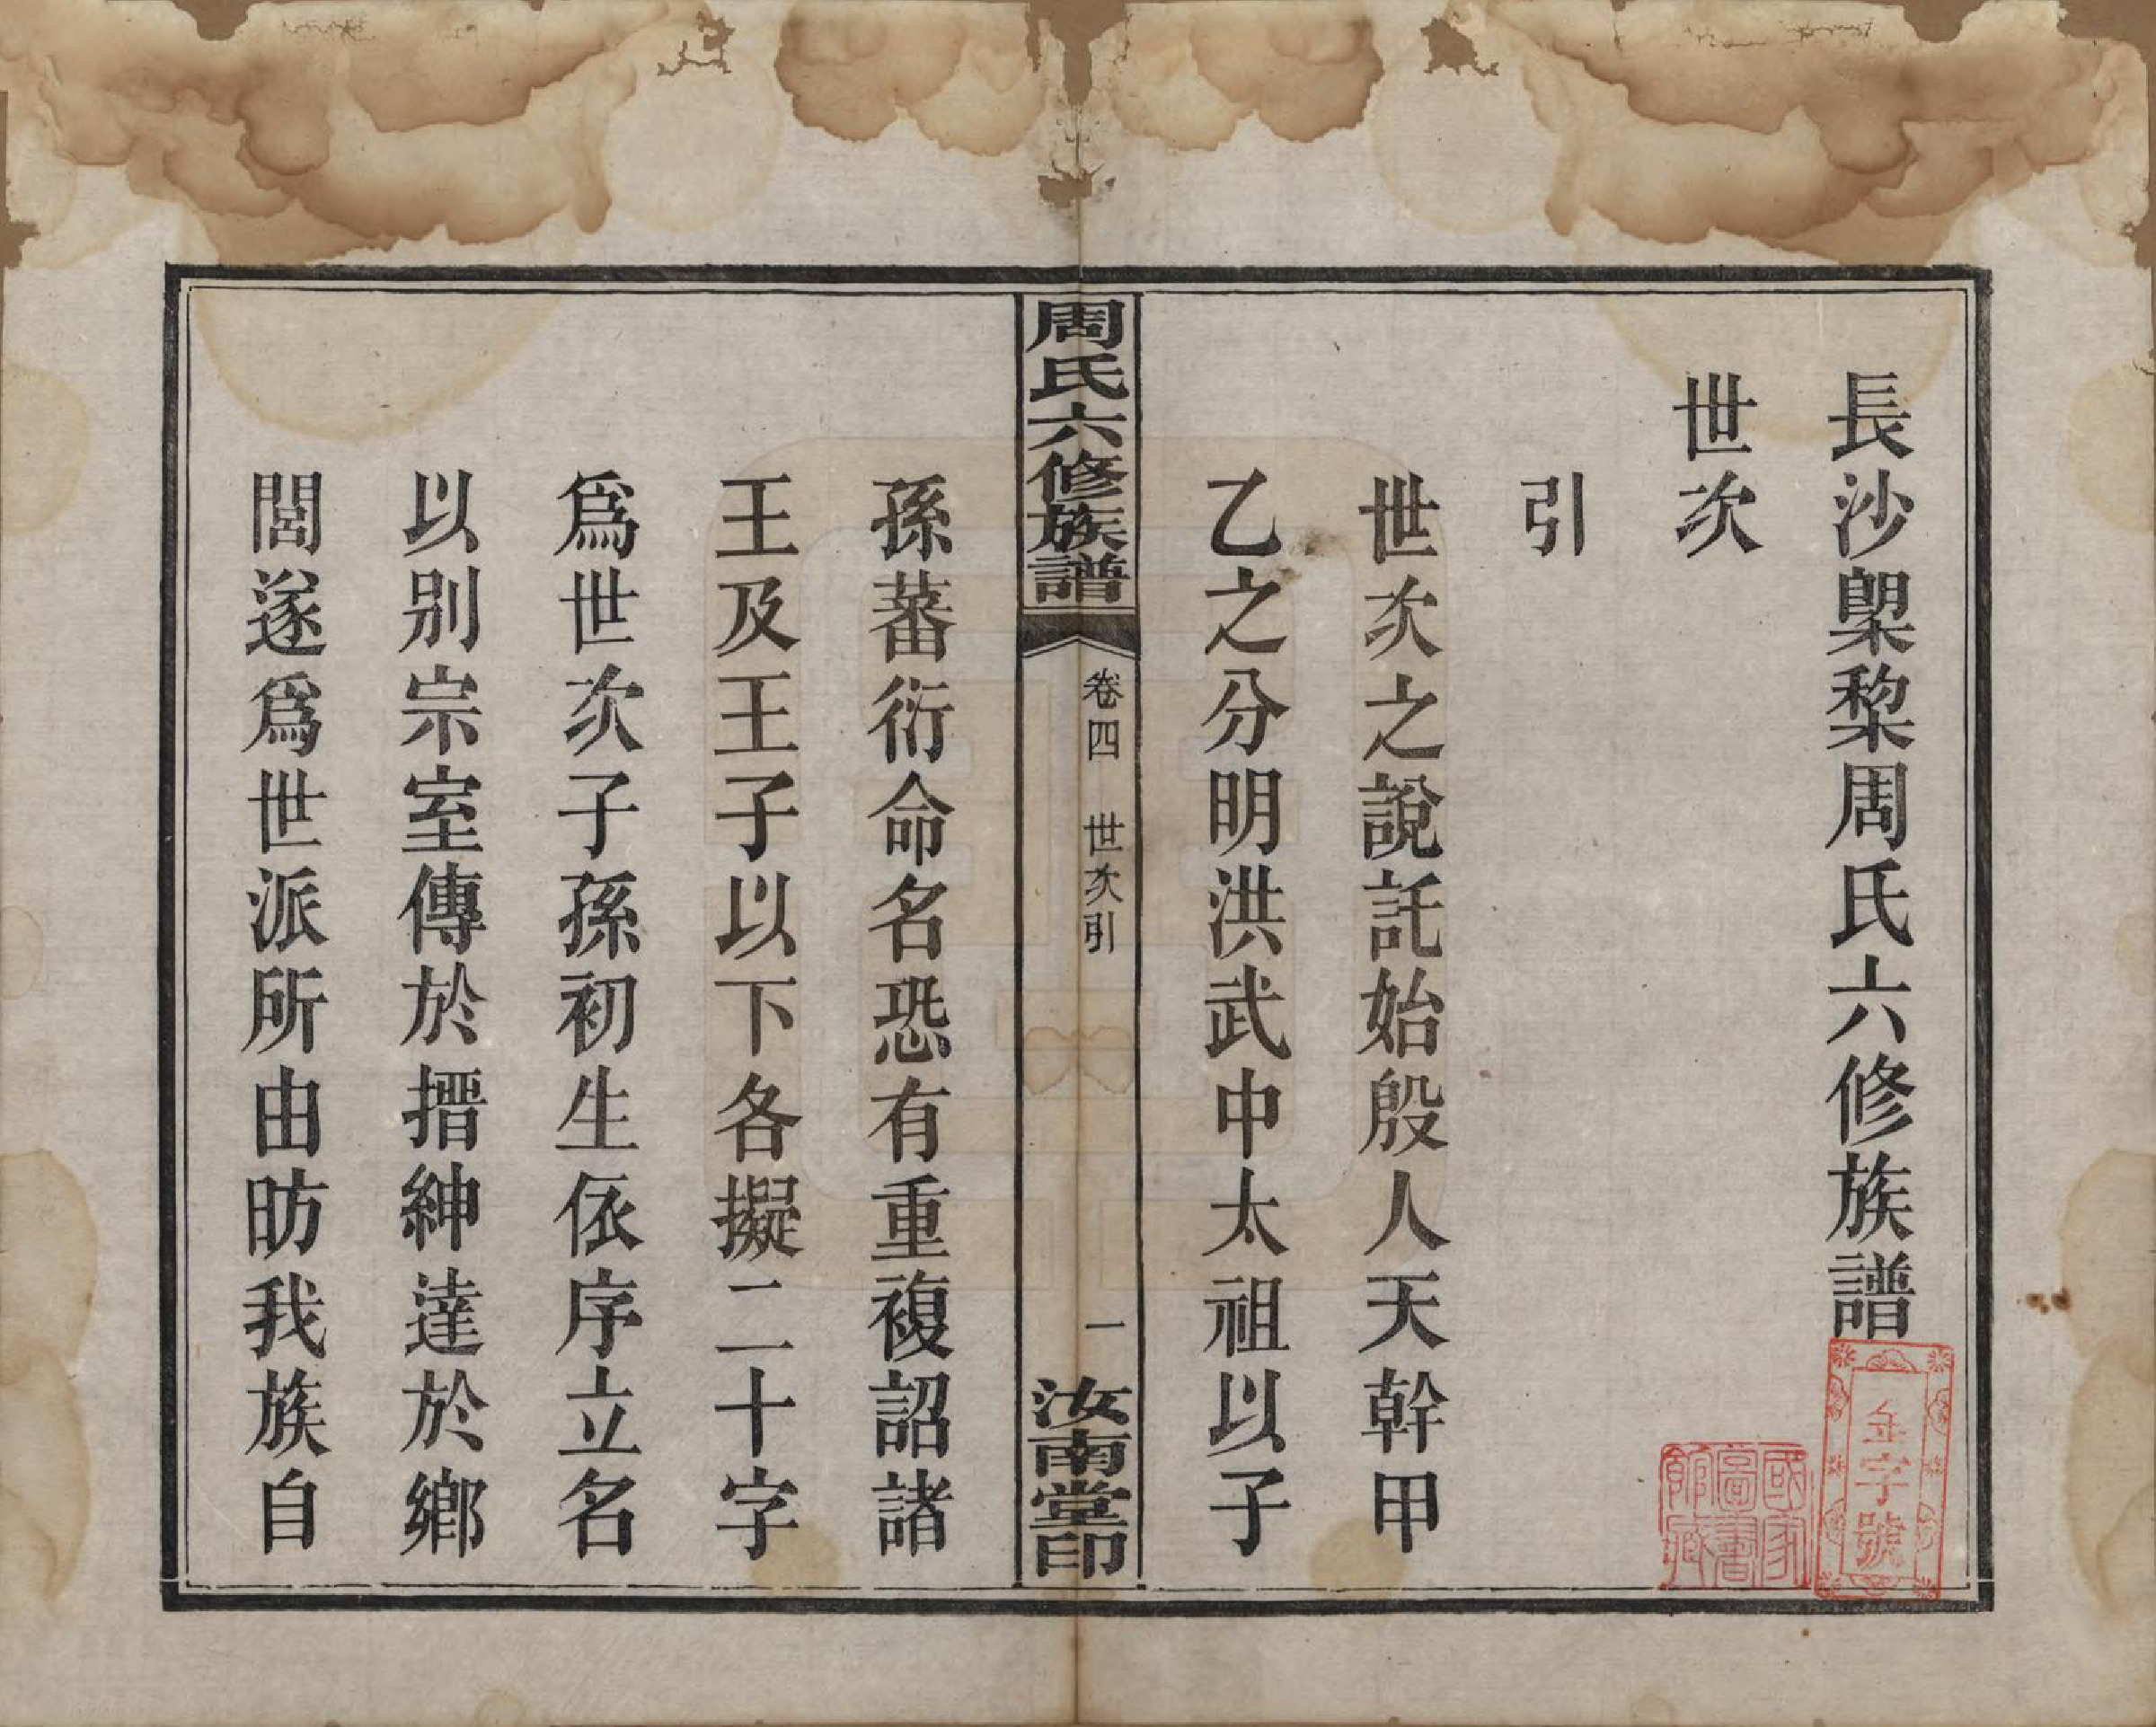 長沙㮚棃周氏六修族譜
世次
引
世次之說託始殷人天幹甲
乙之分明洪武中太祖以子
周氏六修族譜
卷四　世次引
一
汝南堂印
孫蕃衍命名恐有重複詔諸
王及王子以下各擬二十字
爲世次子孫初生依序立名
以別宗室傳於搢紳達於鄉
閭遂爲世派所由昉我族自
金字號
國家
圖書
館藏